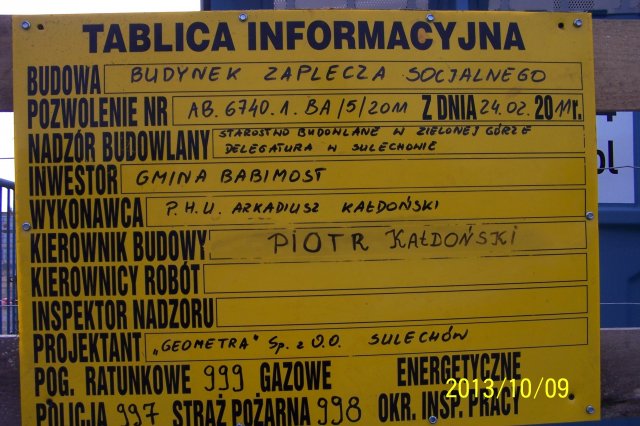 TABLICA INFORMACYJNA
BUDOWA BUDYNEK ZAPLECZA SOCJALNEGO
POZWOLENIE NR AB.6740.1.BA/5/2011 Z DNIA 24.02.2011r.
NADZÓR BUDOWLANY STAROSTWO BUDOWLANE W ZIELONEJ GÓRZE
DELEGATURA W SULECHOWIE
INWESTOR GMINA BABIMOST
WYKONAWCA P.H.U. ARKADIUSZ KAŁDOŃSKI
KIEROWNIK BUDOWY PIOTR KAŁDOŃSKI
KIEROWNICY ROBÓT
INSPEKTOR NADZORU
PROJEKTANT „GEOMETRA" Sp. z O.O. SULECHÓW
POG. RATUNKOWE 999 GAZOWE ENERGETYCZNE
POLICJA 997 STRAŻ POŻARNA 998 OKR. INSP. PRACY
2013/10/09
ol